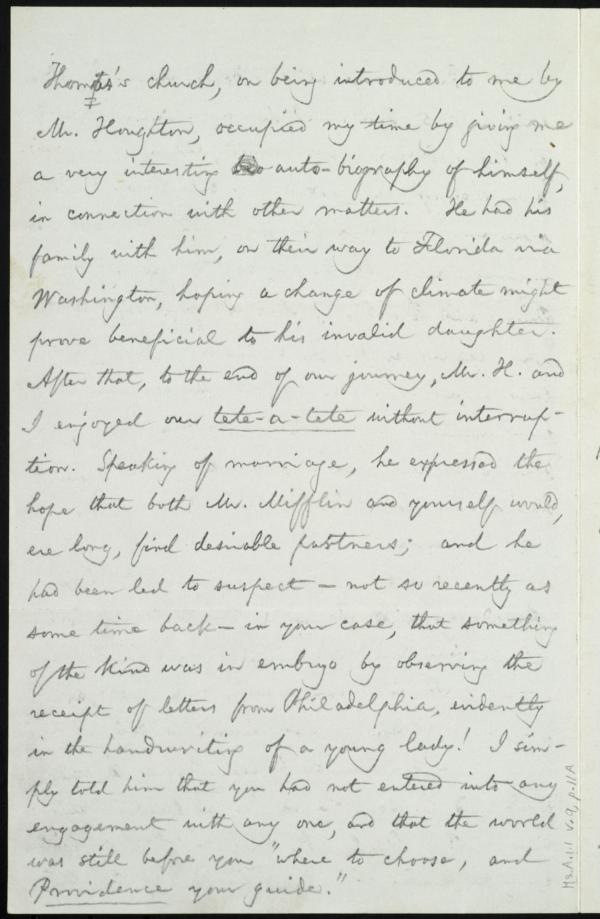 Thompson's church, on being introduced to me by
Mr. Houghton, occupied my time by giving me
a very interesting auto-biography of himself,
in connection with other matters. He had his
family with him, on their way to Florida via
Washington, hoping a change of climate might
prove beneficial to his invalid daughter.
After that, to the end of our journey, Mr. H. and
I enjoyed our tete-a-tete without interrup-
tion. Speaking of marriage, he expressed the
hope that both Mr. Mifflin and yourself would,
ere long, find desirable partners; and he
had been led to suspect — not so recently as
some time back — in your case, that something
of the kind was in embryo by observing the
receipt of letters from Philadelphia, evidently
in the handwriting of a young lady! I sim-
ply told him that you had not entered into any
engagement with any one, and that the world
was still before you "where to choose, and
Providence your guide."
Ms.A.1.1 v.9, p.11A